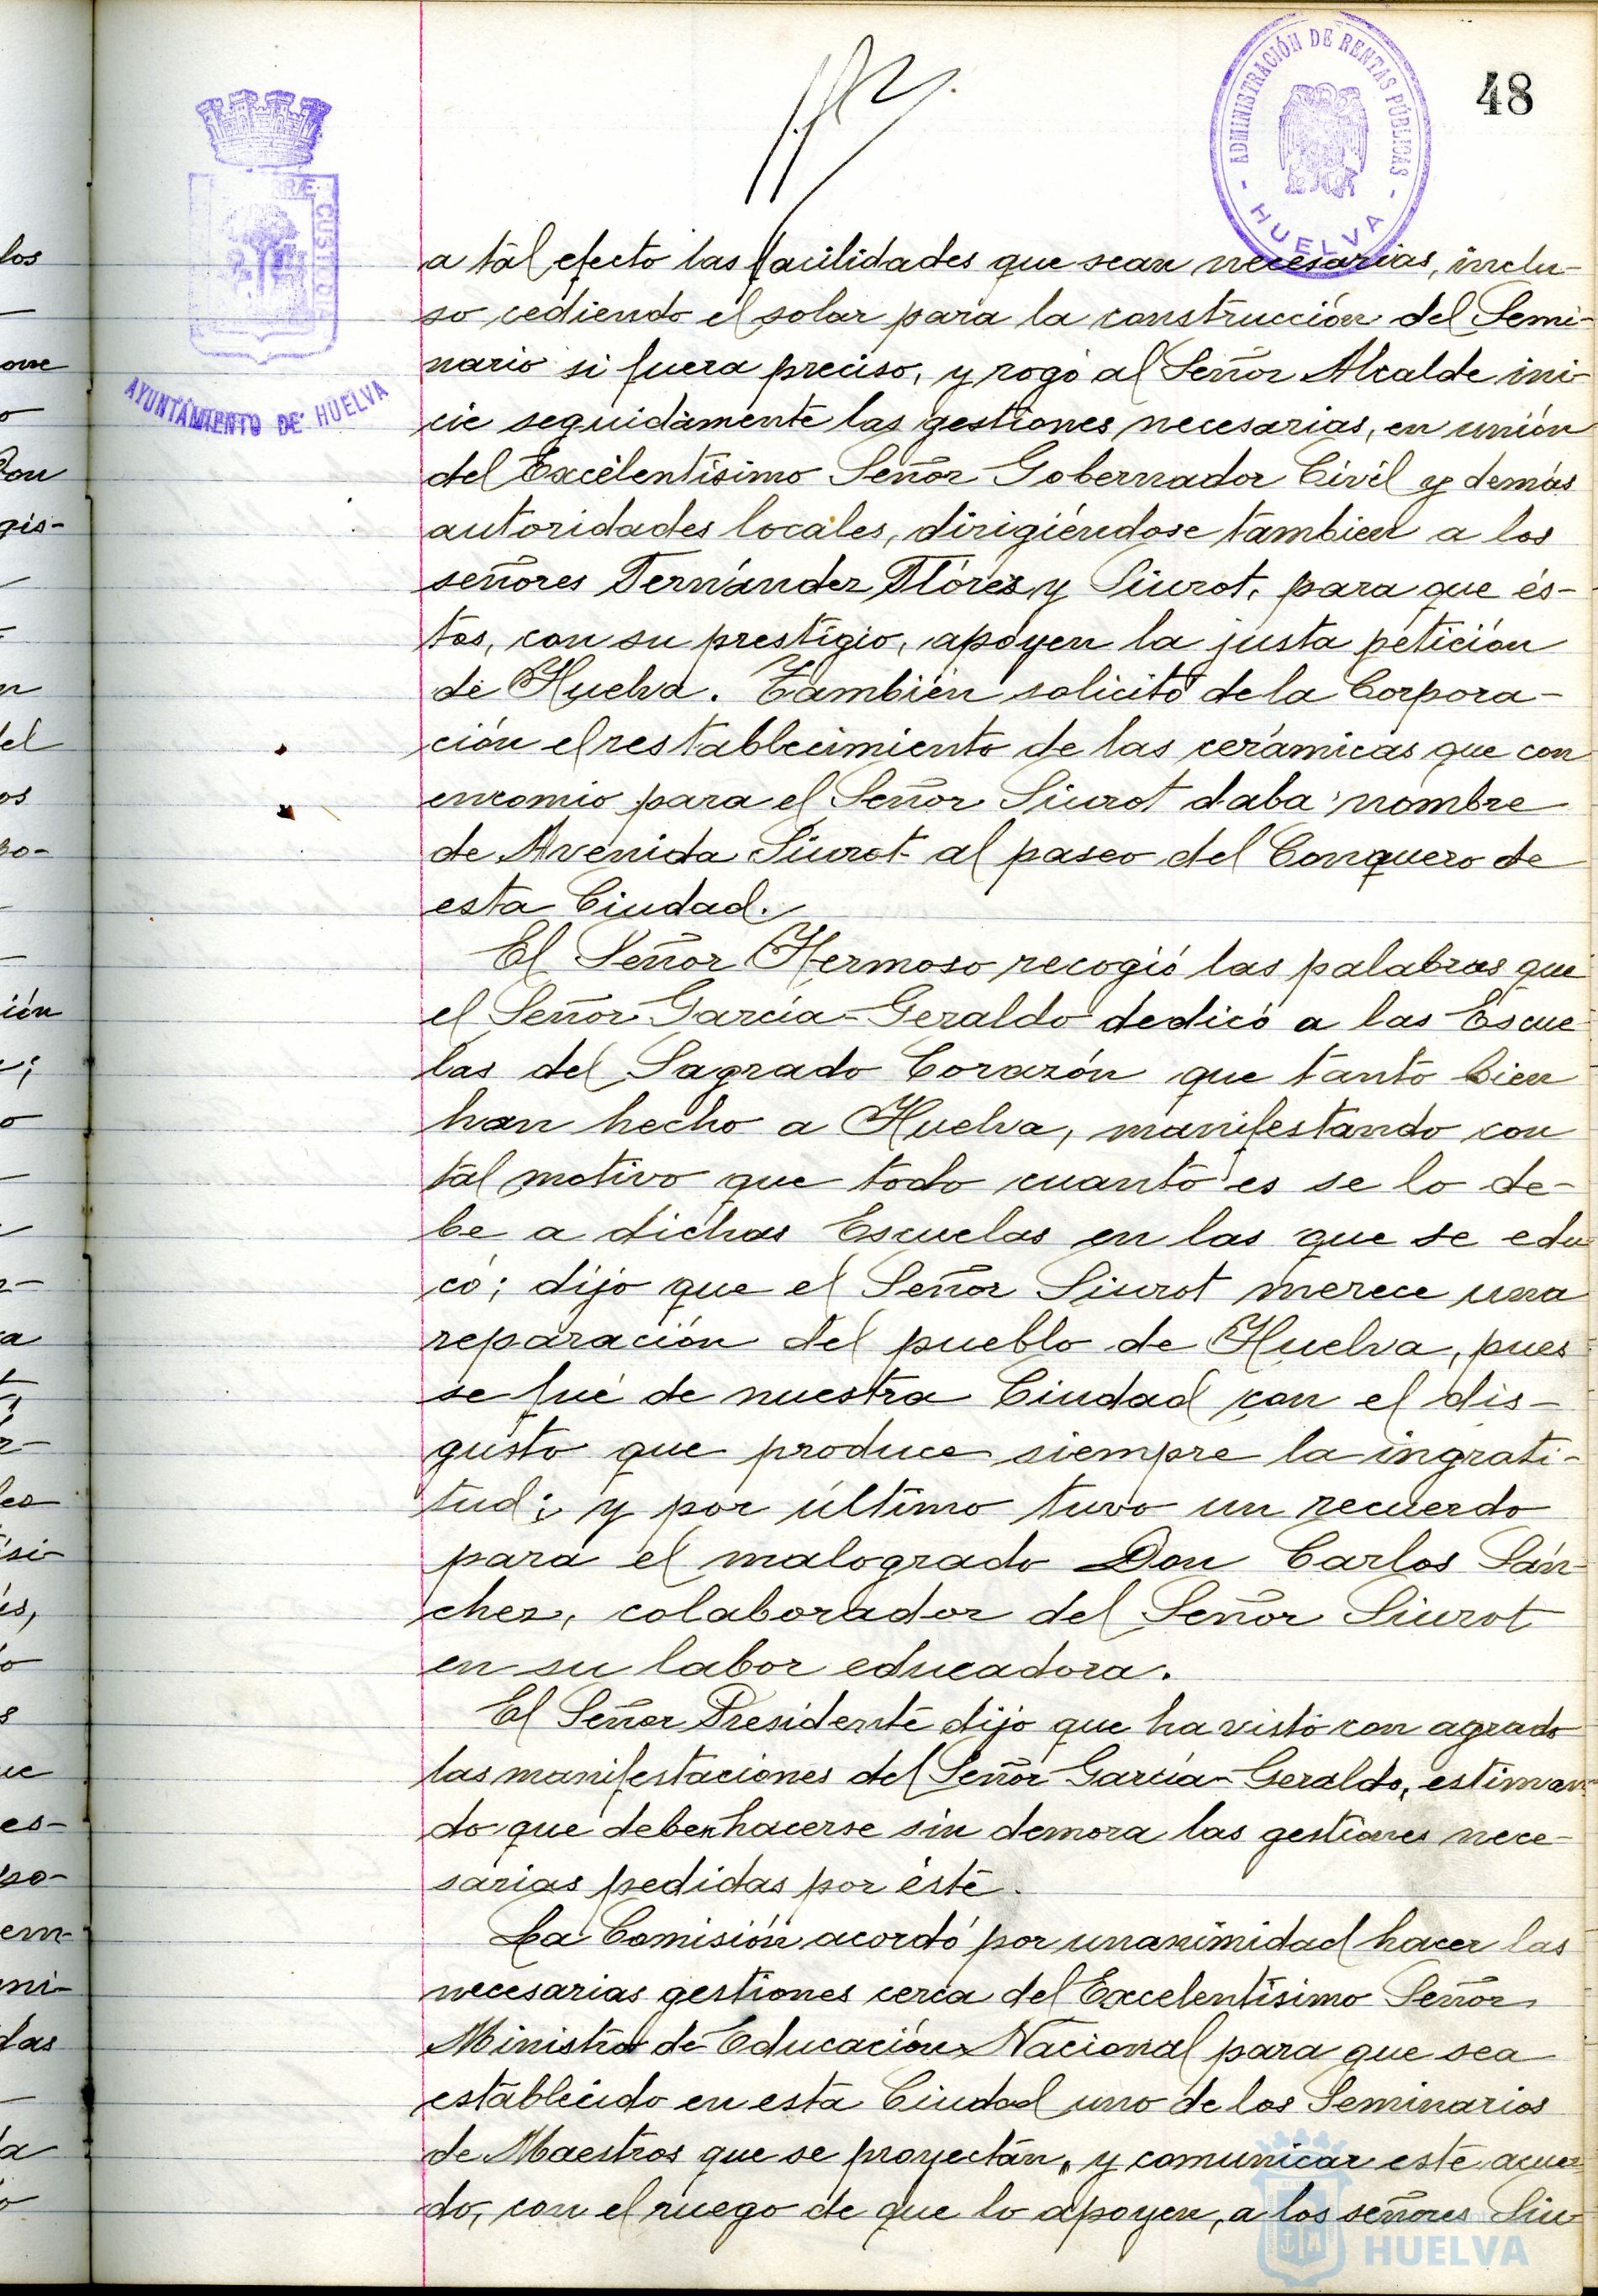 48
ADMINISTRACIÓN DE RENTAS PÚBLICAS
HUELVA
CUSTODI
AYUNTAMIENTO DE HUELVA
a tál efecto las facilidades que sean necesarias, inclu-
so cediendo el solar para la construcción del Semi-
nario si fuera preciso, y rogó al Señor Alcalde ini-
cie seguidamente las gestiones necesarias, en unión
del Excelentísimo Señor Gobernador Civil y demás
autoridades locales, dirigiéndose tambien a los
señores Fernández Flórez y Siurot, para que és-
tos, con su prestigio, apoyen la justa petición
de Huelva. También solicitó de la Corpora-
ción el restablecimiento de las cerámicas que con
encomio para el Señor Siurot daba nombre
de Avenida Siurot al paseo del Conquero de
esta Ciudad.
El Señor Hermoso recogió las palabras que
el Señor García-Geraldo dedicó a las Escue-
las del Sagrado Corazón que tanto bien
han hecho a Huelva, manifestando con
tál motivo que todo cuanto es se lo de-
be a dichas Escuelas en las que se edu-
có; dijo que el Señor Siurot merece una
reparación del pueblo de Huelva, pues
se fué de nuestra Ciudad con el dis-
gusto que produce siempre la ingrati-
tud; y por último tuvo un recuerdo
para el malogrado Don Carlos Sán-
chez, colaborador del Señor Siurot
en su labor educadora.
El Señor Presidente dijo que ha visto con agrado
las manifestaciones del Señor García-Geraldo, estiman-
do que deben hacerse sin demora las gestiones nece-
sarias pedidas por éste.
La Comisión acordó por unanimidad hacer las
necesarias gestiones cerca del Excelentísimo Señor
Ministro de Educación Nacional para que sea
establecido en esta Ciudad uno de los Seminarios
de Maestros que se proyectán, y comunicar este acuer-
do, con el ruego de que lo apoyen, a los señores Siu-
HUELVA